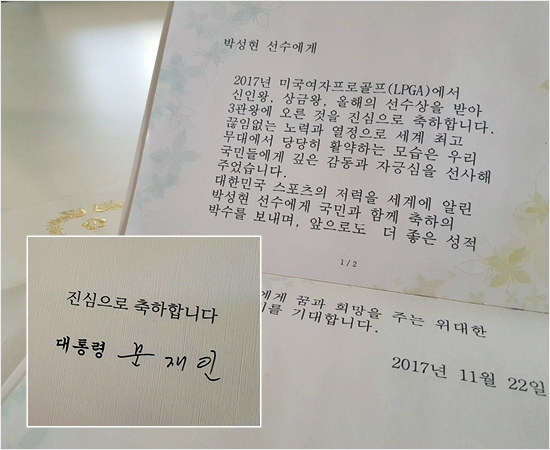 박성현 선수에게
2017년 미국여자프로골프(LPGA)에서
신인왕, 상금왕, 올해의 선수상을 받아
3관왕에 오른 것을 진심으로 축하합니다.
끊임없는 노력과 열정으로 세계 최고
무대에서 당당히 활약하는 모습은 우리
국민들에게 깊은 감동과 자긍심을 선사해
주었습니다.
대한민국 스포츠의 저력을 세계에 알린
박성현 선수에게 국민과 함께 축하의
박수를 보내며, 앞으로도 더 좋은 성적
1/2
에게 꿈과 희망을 주는 위대한
기대합니다.
2017년 11월 22일
진심으로 축하합니다
대통령 문재인